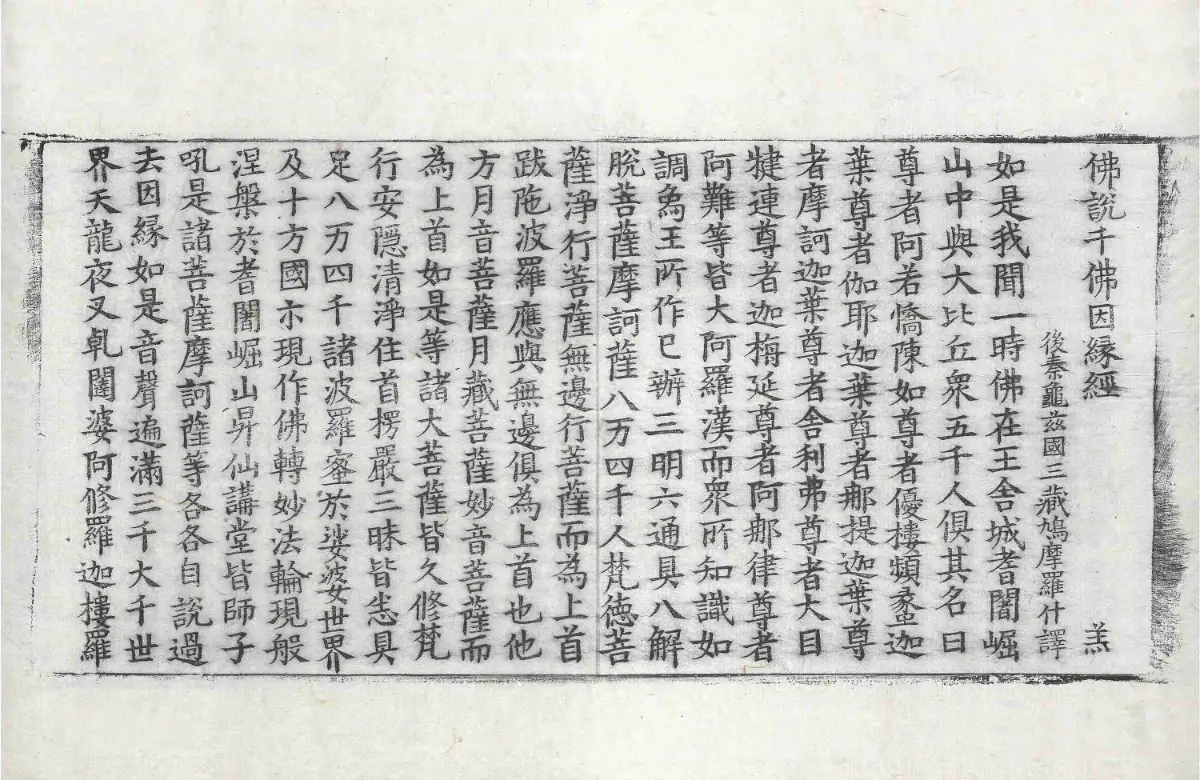 佛說千佛因緣經 羔
後秦龜玆國三藏鳩摩羅什譯
如是我聞一時佛在王舍城耆闍崛
山中與大比丘衆五千人俱其名曰
尊者阿若憍陳如尊者優樓頻䗍迦
葉尊者伽耶迦葉尊者那提迦葉尊
者摩訶迦葉尊者舍利弗尊者大目
揵連尊者迦栴延尊者阿那律尊者
阿難等皆大阿羅漢而衆所知識如
調象王所作已辦三明六通具八解
脫菩薩摩訶薩八万四千人梵德菩
薩淨行菩薩無邊行菩薩而為上首
跋陁波羅應與無邊俱為上首也他
方月音菩薩月藏菩薩妙音菩薩而
為上首如是等諸大菩薩皆久修梵
行安隱清淨住首楞嚴三昧皆悉具
足八万四千諸波羅蜜於娑婆世界
及十方國亦現作佛轉妙法輪現般
涅槃於耆闍崛山昇仙講堂皆師子
吼是諸菩薩摩訶薩等各各自說過
去因緣如是音聲遍滿三千大千世
界天龍夜叉乹闥婆阿修羅迦樓羅